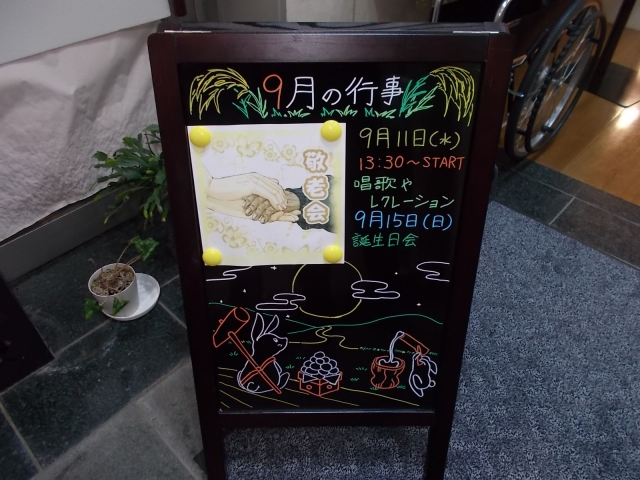 9月の行事
敬老会
9月11日(水)
13:30～START
唱歌や
レクレーション
9月15日(日)
誕生日会